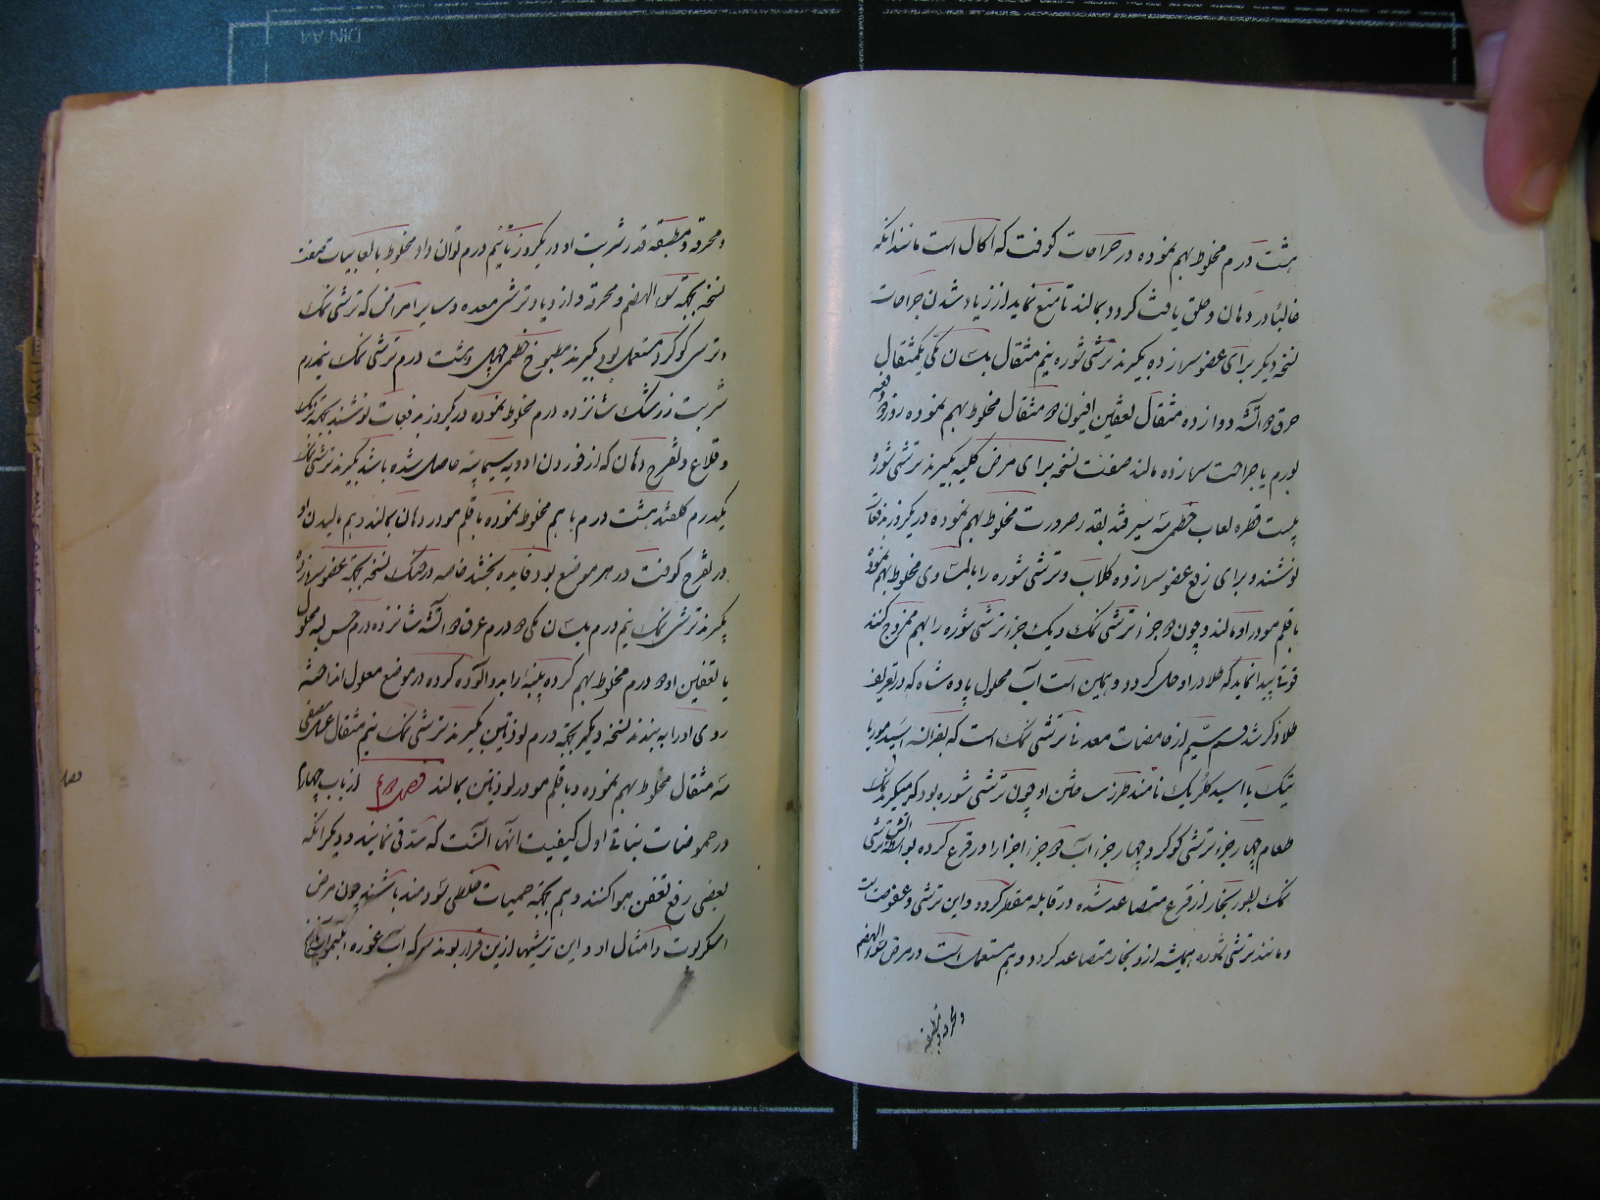 هشت درم مخلوط بهم نموده در جراحات کوفت که اکال است مانند آنکه
غالباً در دهان و حلق یافت کردد بمالند تا منع نماید از زیاد شدن جراحات
نسخه دیکر برای عضو سرمازده بکیرند ترشی شوره نیم مثقال بلسان مکی یکمثقال
عرق دوآتشه دوازده مثقال لعقین افیون دو مثقال مخلوط بهم نموده روزی دو دفعه
بورم یا جراحت سرمازده مالند صفت نسخه برای مرض کلیه بکیرند ترشی شوره
بیست قطره لعاب خطمی سه سیر قند بقدر ضرورت مخلوط بهم نموده در یکروز بدفعات
نوشند و برای رفع عضو سرمازده کلاب و ترشی شوره را بالمساوی مخلوط بهم نموده
با قلم مو در او مالند و چون دو جزء ترشی نمک و یک جزء ترشی شوره را بهم ممزوج کنند
قوتی پیدا نماید که طلا در او حل کردد و همین است آب محلول پادشاه که در تعریف
طلا ذکر شد قسم سیّم از حامضات معدنی ترشی نمک است که بفرانسه اسید موریا
تیک یا اسید کلریک نامند طرز ساختن او چون ترشی شوره بود که میکیرند نمک
طعام چهار جزء ترشی کوکرد چهار جزء آب دو جزء اجزا را در قرع کرده بواسطه آتش ترشی
نمک بطور بخار از قرع متصاعد شده در قابله مقطر کردد و این ترشی و عفوصت است
و مانند ترشی شوره همیشه ازو بخار متصاعد کردد و هم مستعمل است در مرض سوء الهضم
و محرقه و مطبقه
و محرقه و مطبقه قدر شربت او در یکروز تا نیم درم توان داد مخلوط با لعابیات صفت
نسخه بجهة سوء الهضم و محرقه و ازدیاد ترشی معده و سایر امراض که ترشی نمک
و ترشی کوکرد مستعمل بود بکیرند مطبوخ خطمی چهل و هشت درم ترشی نمک نیمدرم
شربت زرشک شانزده درم مخلوط نموده در یکروز بدفعات نوشند بجهة
و قلاع و تقرح دهان که از خوردن ادویه سیمابیه حاصل شده باشد بکیرند ترشی نمک
یکدرم کلقند هشت درم با هم مخلوط نموده با قلم مو در دهان بمالند و هم مالیدن او
در تقرح کوفت در هر موضع بود فایده بخشد خاصه در حنک نسخه بجهة عضو سرمازده
بکیرند ترشی نمک نیم درم بلسان مکی دو درم عرق دوآتشه شانزده درم مخلول
یا لعقین او دو درم مخلوط بهم کرده پنبه را بدو آلوده کرده در موضع معلول انداخته
روی او را به بندند نسخه دیکر بجهة درم لوزتین بکیرند ترشی نمک نیم مثقال عسل مصفی
سه مثقال مخلوط بهم نموده و با قلم مو در لوزتین بمالند فصل دویم از باب چهارم
در حموضات نباتی اول کیفیت آنها آنست که سدّ قی نمایند و دیکر آنکه
بعضی رفع تعفن هوا کنند و هم بجهة حمیات خلطی سودمند باشند چون مرض
اسکربوت و امثال او و این ترشیها ازین قرار بودند سرکه آب غوره آبلیمو